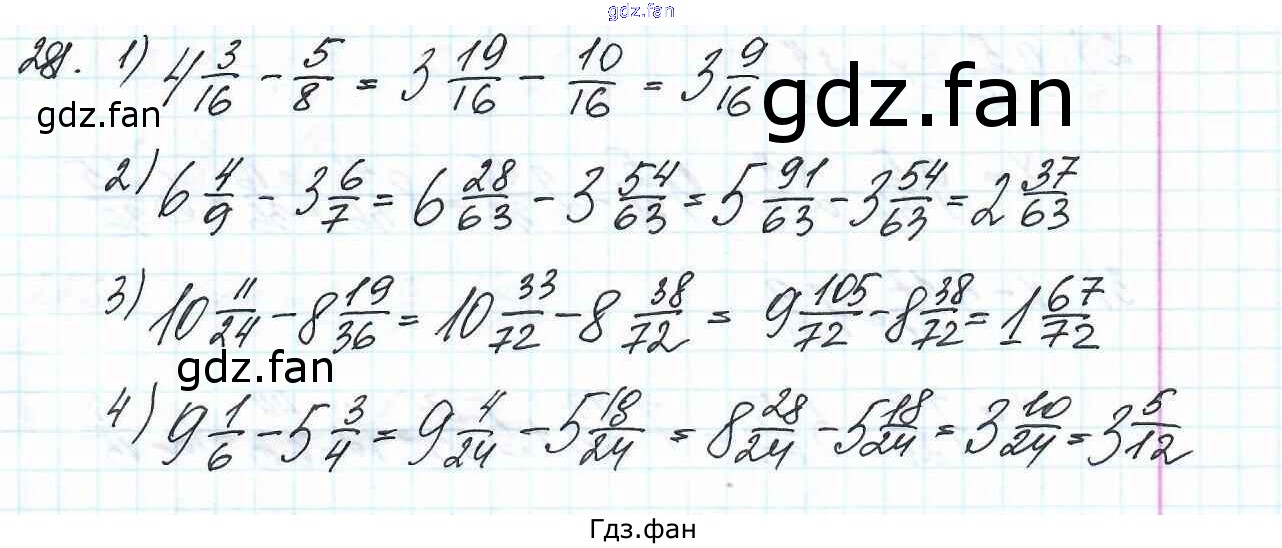 gdz.fan
281. 1) 4 3/16 - 5/8 = 3 19/16 - 10/16 = 3 9/16
gdz.fan
gdz.fan
2) 6 4/9 - 3 6/7 = 6 28/63 - 3 54/63 = 5 91/63 - 3 54/63 = 2 37/63
3) 10 11/24 - 8 19/36 = 10 33/72 - 8 38/72 = 9 105/72 - 8 38/72 = 1 67/72
gdz.fan
4) 9 1/6 - 5 3/4 = 9 4/24 - 5 18/24 = 8 28/24 - 5 18/24 = 3 10/24 = 3 5/12
Гдз.фан